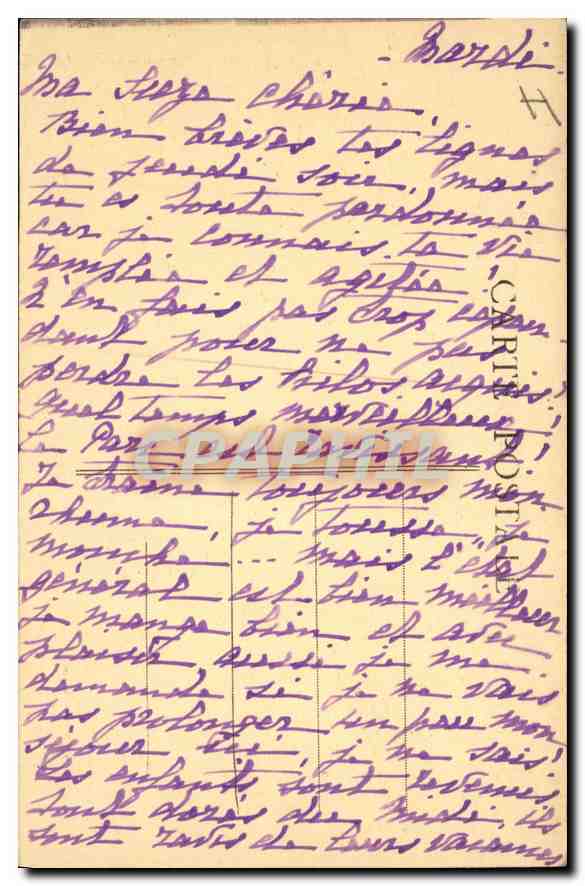 - Mardi -
Ma chérie,
Bien brèves tes lignes
de jeudi soir, mais
tu es toute pardonnée
car je connais ta vie
remplie et agitée !
N'en fais pas trop cepen-
dant pour ne pas
perdre les kilos acquis !
Quel temps merveilleux !
Le Parc est !
Je traîne toujours mon
rhume, je tousse, je
mouche --- mais l'état
général est bien meilleur
je mange bien et avec
plaisir aussi je me
demande si je ne vais
pas prolonger un peu mon
séjour ici, je ne sais !
Les enfants sont revenus
tout dorés du Midi, ils
sont ravis de leurs vacances
CARTE POSTALE
CPAPHIL